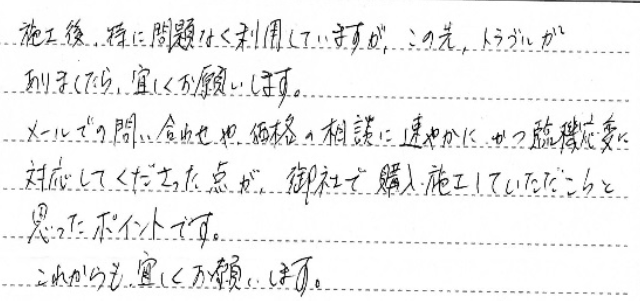 施工後、特に問題なく利用していますが、この先、トラブルが
ありましたら、宜しくお願いします。
メールでの問い合わせや、価格の相談に速やかに、かつ臨機応変に
対応してくださった点が、御社で購入、施工していただこうと
思ったポイントです。
これからも、宜しくお願いします。